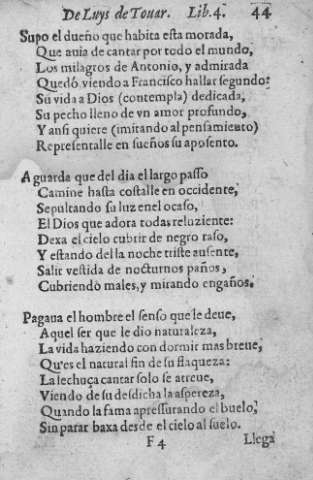 De Luys de Touar. Lib. 4. 44
Supo el dueño que habita esta morada,
Que auia de cantar por todo el mundo,
Los milagros de Antonio, y admirada
Quedó, viendo a Francisco hallar segundo:
Su vida a Dios (contempla) dedicada,
Su pecho lleno de vn amor profundo,
Y ansi quiere (imitando al pensamiento)
Representalle en sueños su aposento.
Aguarda que del dia el largo passo
Camine hasta costalle en occidente,
Sepultando su luz en el ocaso,
El Dios que adora rodas reluziente:
Dexa el cielo cubrir de negro raso,
Y estando della noche triste ausente,
Salir vestida de nocturnos paños,
Cubriendo males, y mirando engaños.
Pagaua el hombre el senso que le deue,
Aquel ser que le dio naturaleza,
La vida haziendo con dormir mas breue,
Qu'es el natural fin de su flaqueza:
La lechuça cantar solo se atreue,
Viendo de su desdicha la aspereza,
Quando la fama apressurando el buelo,
Sin parar baxa desde el cielo al suelo.
F 4 Llega